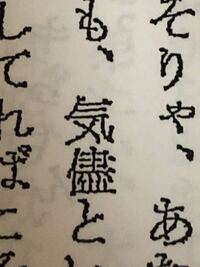 そりゃ、あ
も、気儘と
してればこ